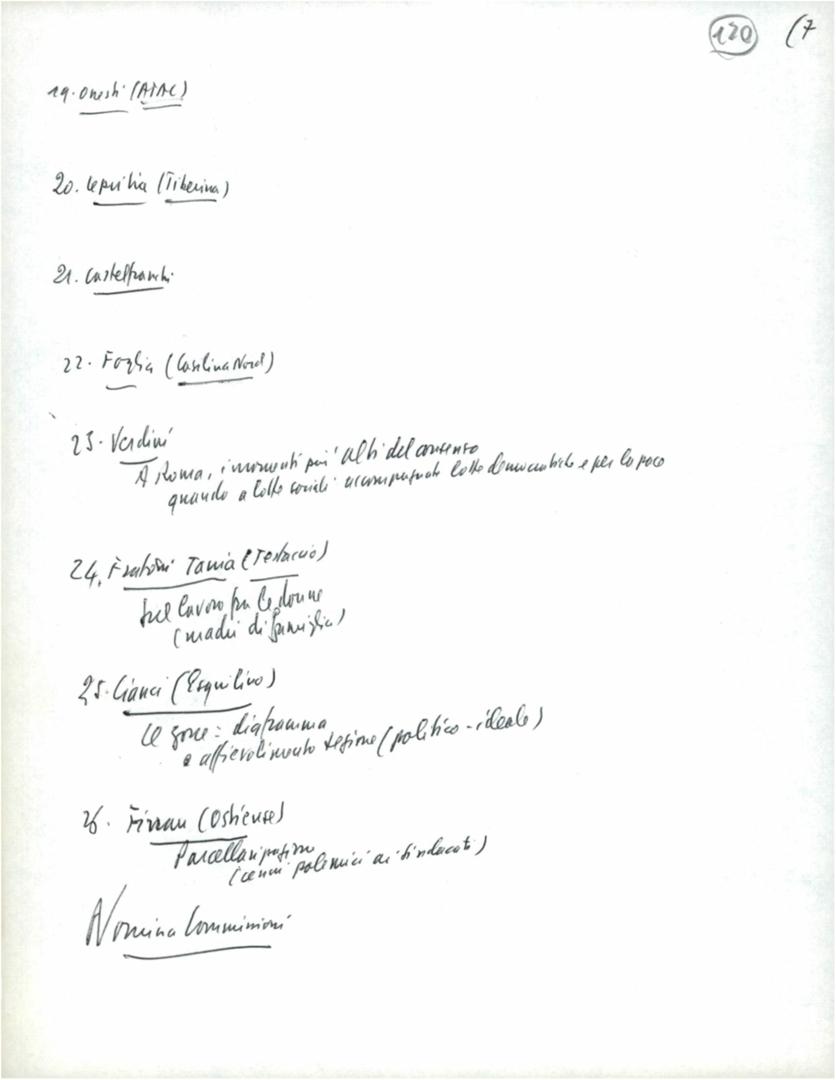 120 (7
19. Onesti (ATAC)
20. (Tiberina)
21. Castelfranchi
22. Foglia (Casilina Nord)
23. Verdini
A Roma, i momenti più alti del consenso
quando a lotte sociali accompagnate lotte democratiche e per lo
24. Tania (Testaccio)
sul lavoro fra le donne
(madri di famiglia)
25. Cianci (Esquilino)
Le zone: diaframma
e affievolimento tensione (politico-ideale)
26. (Ostiense)
Parcellarizzazione
(cenni polemici ai sindacati)
Nomina Commissioni